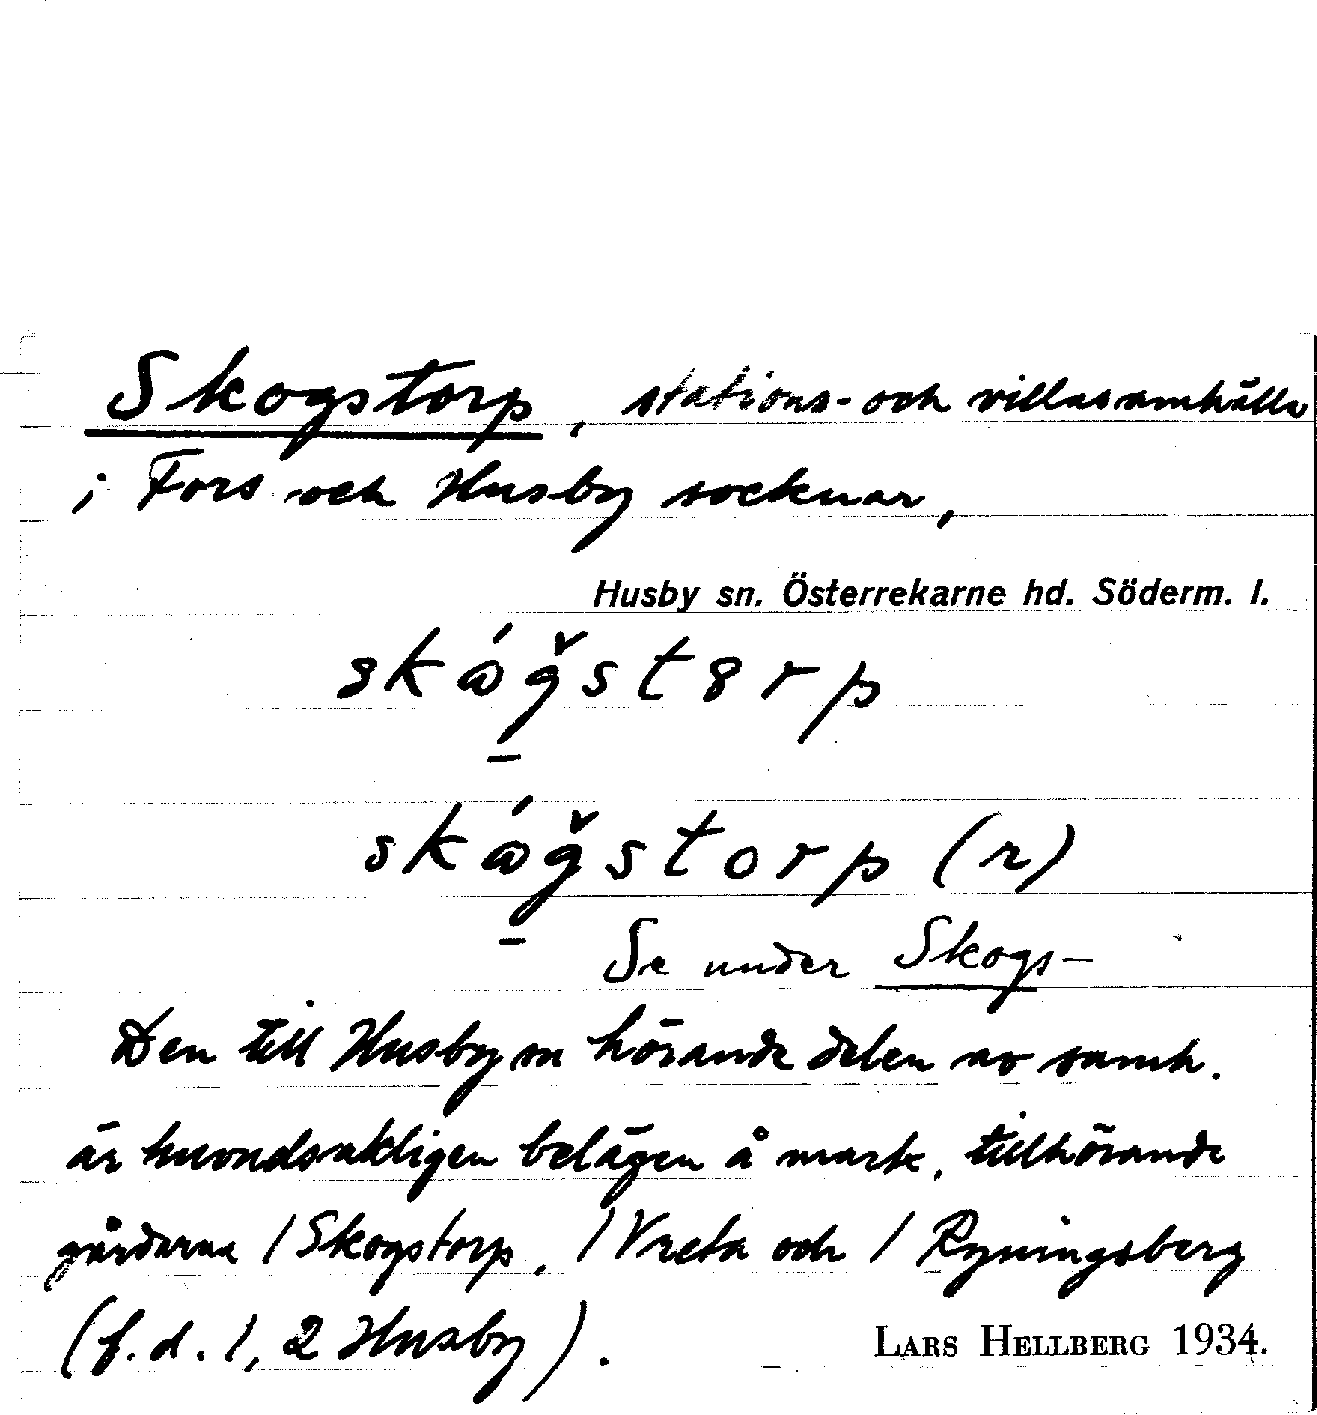 Skogstorp, stations- och villasamhälle
i Fors och Husby socknar,
Husby sn. Österrekarne hd. Söderm. l.
skógstorp (r)
Se under Skogs-
Den till Husby sn hörande delen av samh.
är huvudsakligen belägen å mark, tillhörande
gårdarna 1 Skogstorp, 1 Vreta och 1 Ryningsberg
(f.d. 1, 2 Husby).
LARS HELLBERG 1934.